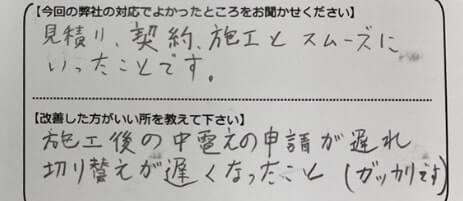 【今回の弊社の対応でよかったところをお聞かせください】
見積り、契約、施工と スムーズに
いったことです。
【改善した方がいい所を教えて下さい】
施工後の中電えの申請が遅れ
切り替えが遅くなったこと (ガッカリです)